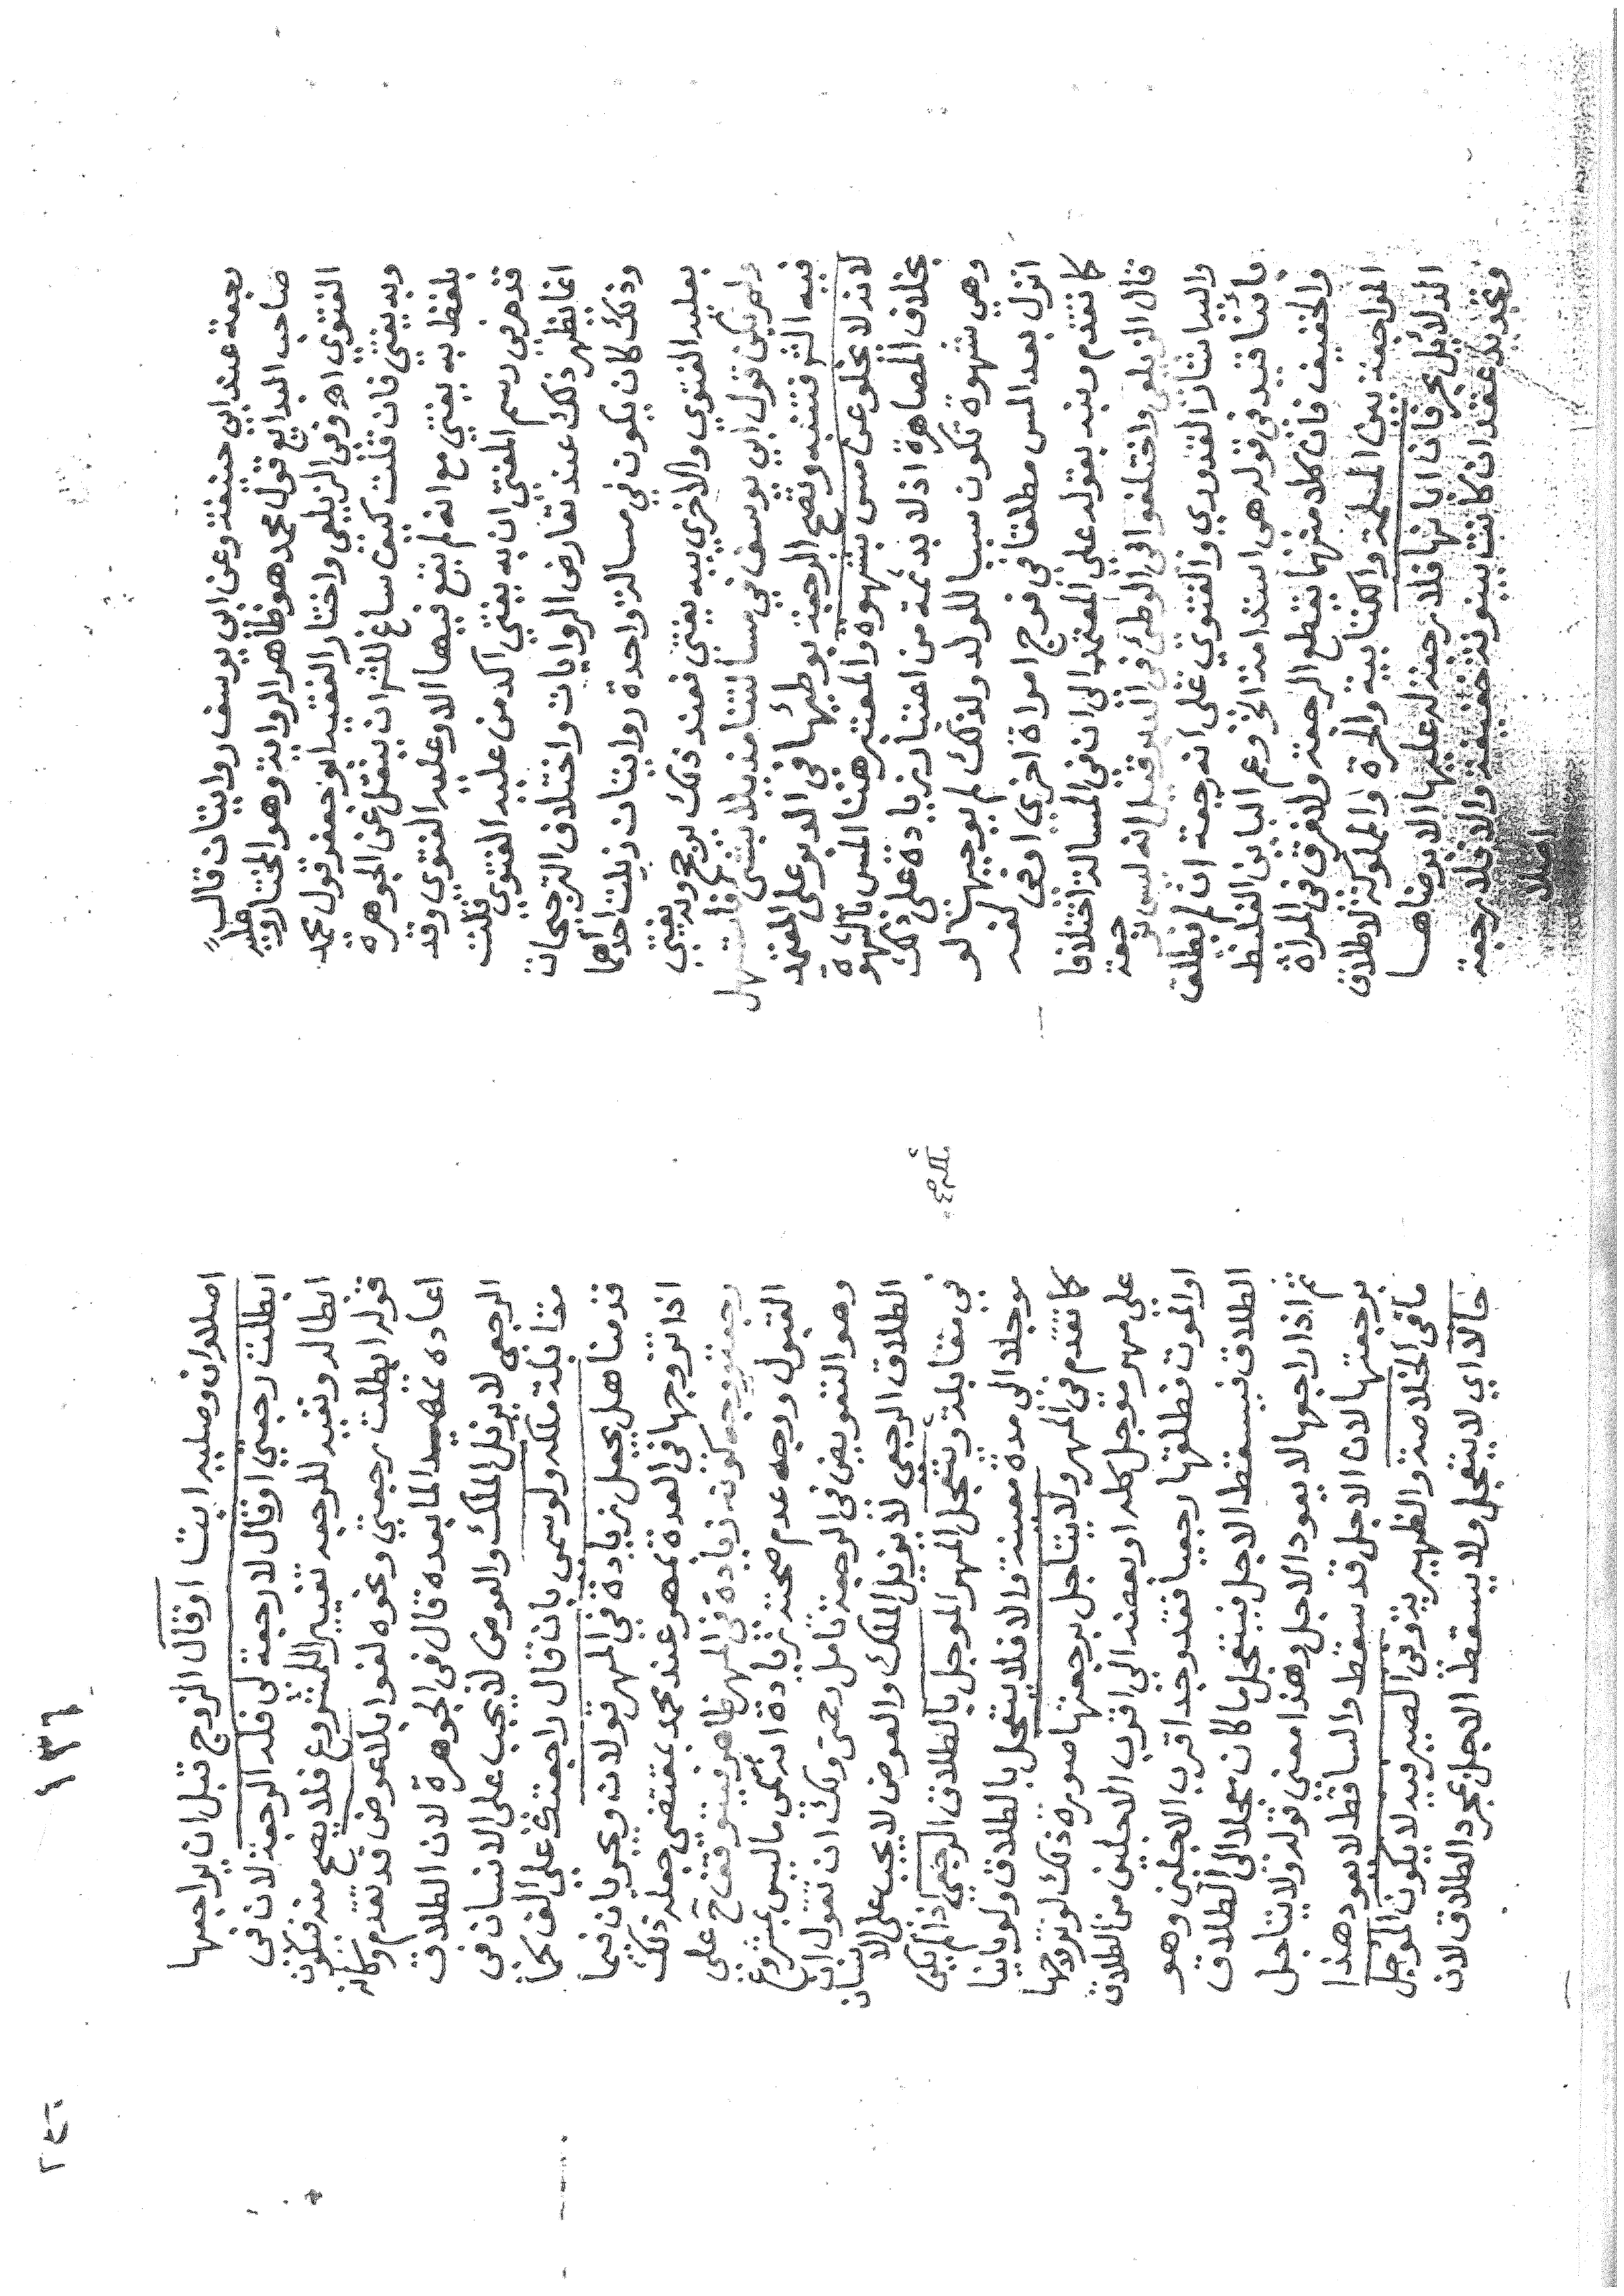 رجعة عند ابي حنيفة وعن ابي يوسف روايتان قال
صاحب البدايع قول محمد هو ظاهر الرواية وهو المختار وعليه
الفتوي اه وفي الزيلعي واختار الفقيه ابو جعفر قول محمد
وبه يفتي فان قلت كيف ساغ للش ان ينقل عن الجوهره
بلفظ به يفتي مع انه لم يقع فيها الا وعليه الفتوي وقد
قدم في رسم المفتي ان به يفتي اكد من عليه الفتوي قلت
انما يظهر ذلك عند تعارض الروايات واختلاف الترجيحات
وذلك كان يكون في مسالة واحدة روايتان ذيلت احداهما
بعليه الفتوي والاخري ببه يفتي فعند ذلك يرجح وبه يفتي
ولم يكن قول ابي يوسف في مسالتنا مذيلا بشي
فيه الش فتنبه وتصح الرجعة بوطيها في الدبر علي المعتمد
لانه لا يخلو عن مس بشهوه والمعتبر هنا المس بالشهوة
بخلاف المصاهرة اذ لا بد ثمة من اعتبار زيادة علي ذلك
وهي شهوة تكون سببا للولد ولذلك لم يوجبها لو
انزل بعد المس مطلقا في فرج امراة اخري او في لغيره
كما تقدم ونبه بقوله علي المعتمد الي ان في المسالة اختلافا
قال الزيلعي واختلفوا في الوطئ في الدبر قيل انه ليس برجعة
والبه اشار القدوري والفتوي علي انه رجعة ان لم يطلق
بائنا قيد في قوله هي استدامة الخ وعم الباين الغليظ
والخفيف فان كلا منهما يقطع الرجعة ولا فرق في المراة
المراجعة بين المسلمة والكتابية والحرة والمملوكة لاطلاق
الدلائل بحر فان ابانها فلا رجعة له عليها الا برضاها
وبتجويد عقد ان كانت بينونة خفيفة والا فلا رجعة
اصلا
١٣٦
٢٤٠
اصلا وان وصليه ابت او قال الزوج قبل ان يراجعها
ابطلت رجعتي او قال لا رجعة لي فله الرجعة لان في
ابطاله وتغييره للرجعه تغيير اللمشروع فلا يصح منه فيكون
قوله ابطلت رجعتي ونحوه لغوا بلا عوض قد تقدم وكانه
اعاده تمهيدا لما بعده قال في الجوهرة لان الطلاق
الرجعي لا يزيل الملك والعوض لا يجب علي الانسان في
مقابلة ملكه ولو سمي بان قال راجعتك علي الف كما
قدمنا هل يجعل زيادة في المهر قولان ويجريان فيما
اذا تزوجها في العدة بمهر عند محمد بمقتضي جعله ذلك
رجعة ووجه كونه زيادة في المهر ظاهر فيتوقف ح علي
القبول ووجه عدم صحته زيادة انه سمي ما ليس بمشروع
وهو التعويض في الرجعة تامل رحمتي ولك ان تقول ان
الطلاق الرجعي لا يزيل الملك والعوض لا يجب علي الانسان
في مقابلة ويتعجل المهر الموجل بالطلاق الرجعي اذا لم يكن
موجلا الي مدة معينة والا فلا يتعجل بالطلاق ولو باينا
كما تقدم في المهر ولا يتاجل برجعتها صورة ذلك لو تزوجها
علي مهر موجل كله او بعضه الي اقرب الاجلين من الطلاق
او الموت فطلقها رجعيا فقد وجد اقرب الاجلين وهو
الطلاق فيسقط الاجل فيتعجل ما كان معجلا الي الطلاق
ثم اذا راجعها لا يعود الاجل وهذا معني قوله ولا يتاجل
برجعتها لان الاجل قد سقط والساقط لا يعود وهذا
ما في الخلاصة والظهيريه وفي الصيرفيه لا يكون الموجل
حالا اي لا يتعجل ولا يسقط الاجل بمجرد الطلاق لان